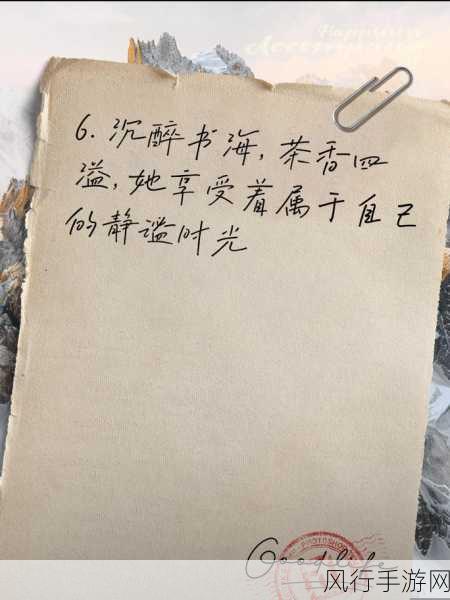 Happiness
Accompany
6. 沉醉书海，茶香四
溢，她享受着属于自己
的静谧时光
PHOTOSHOP
Good life
风行手游网